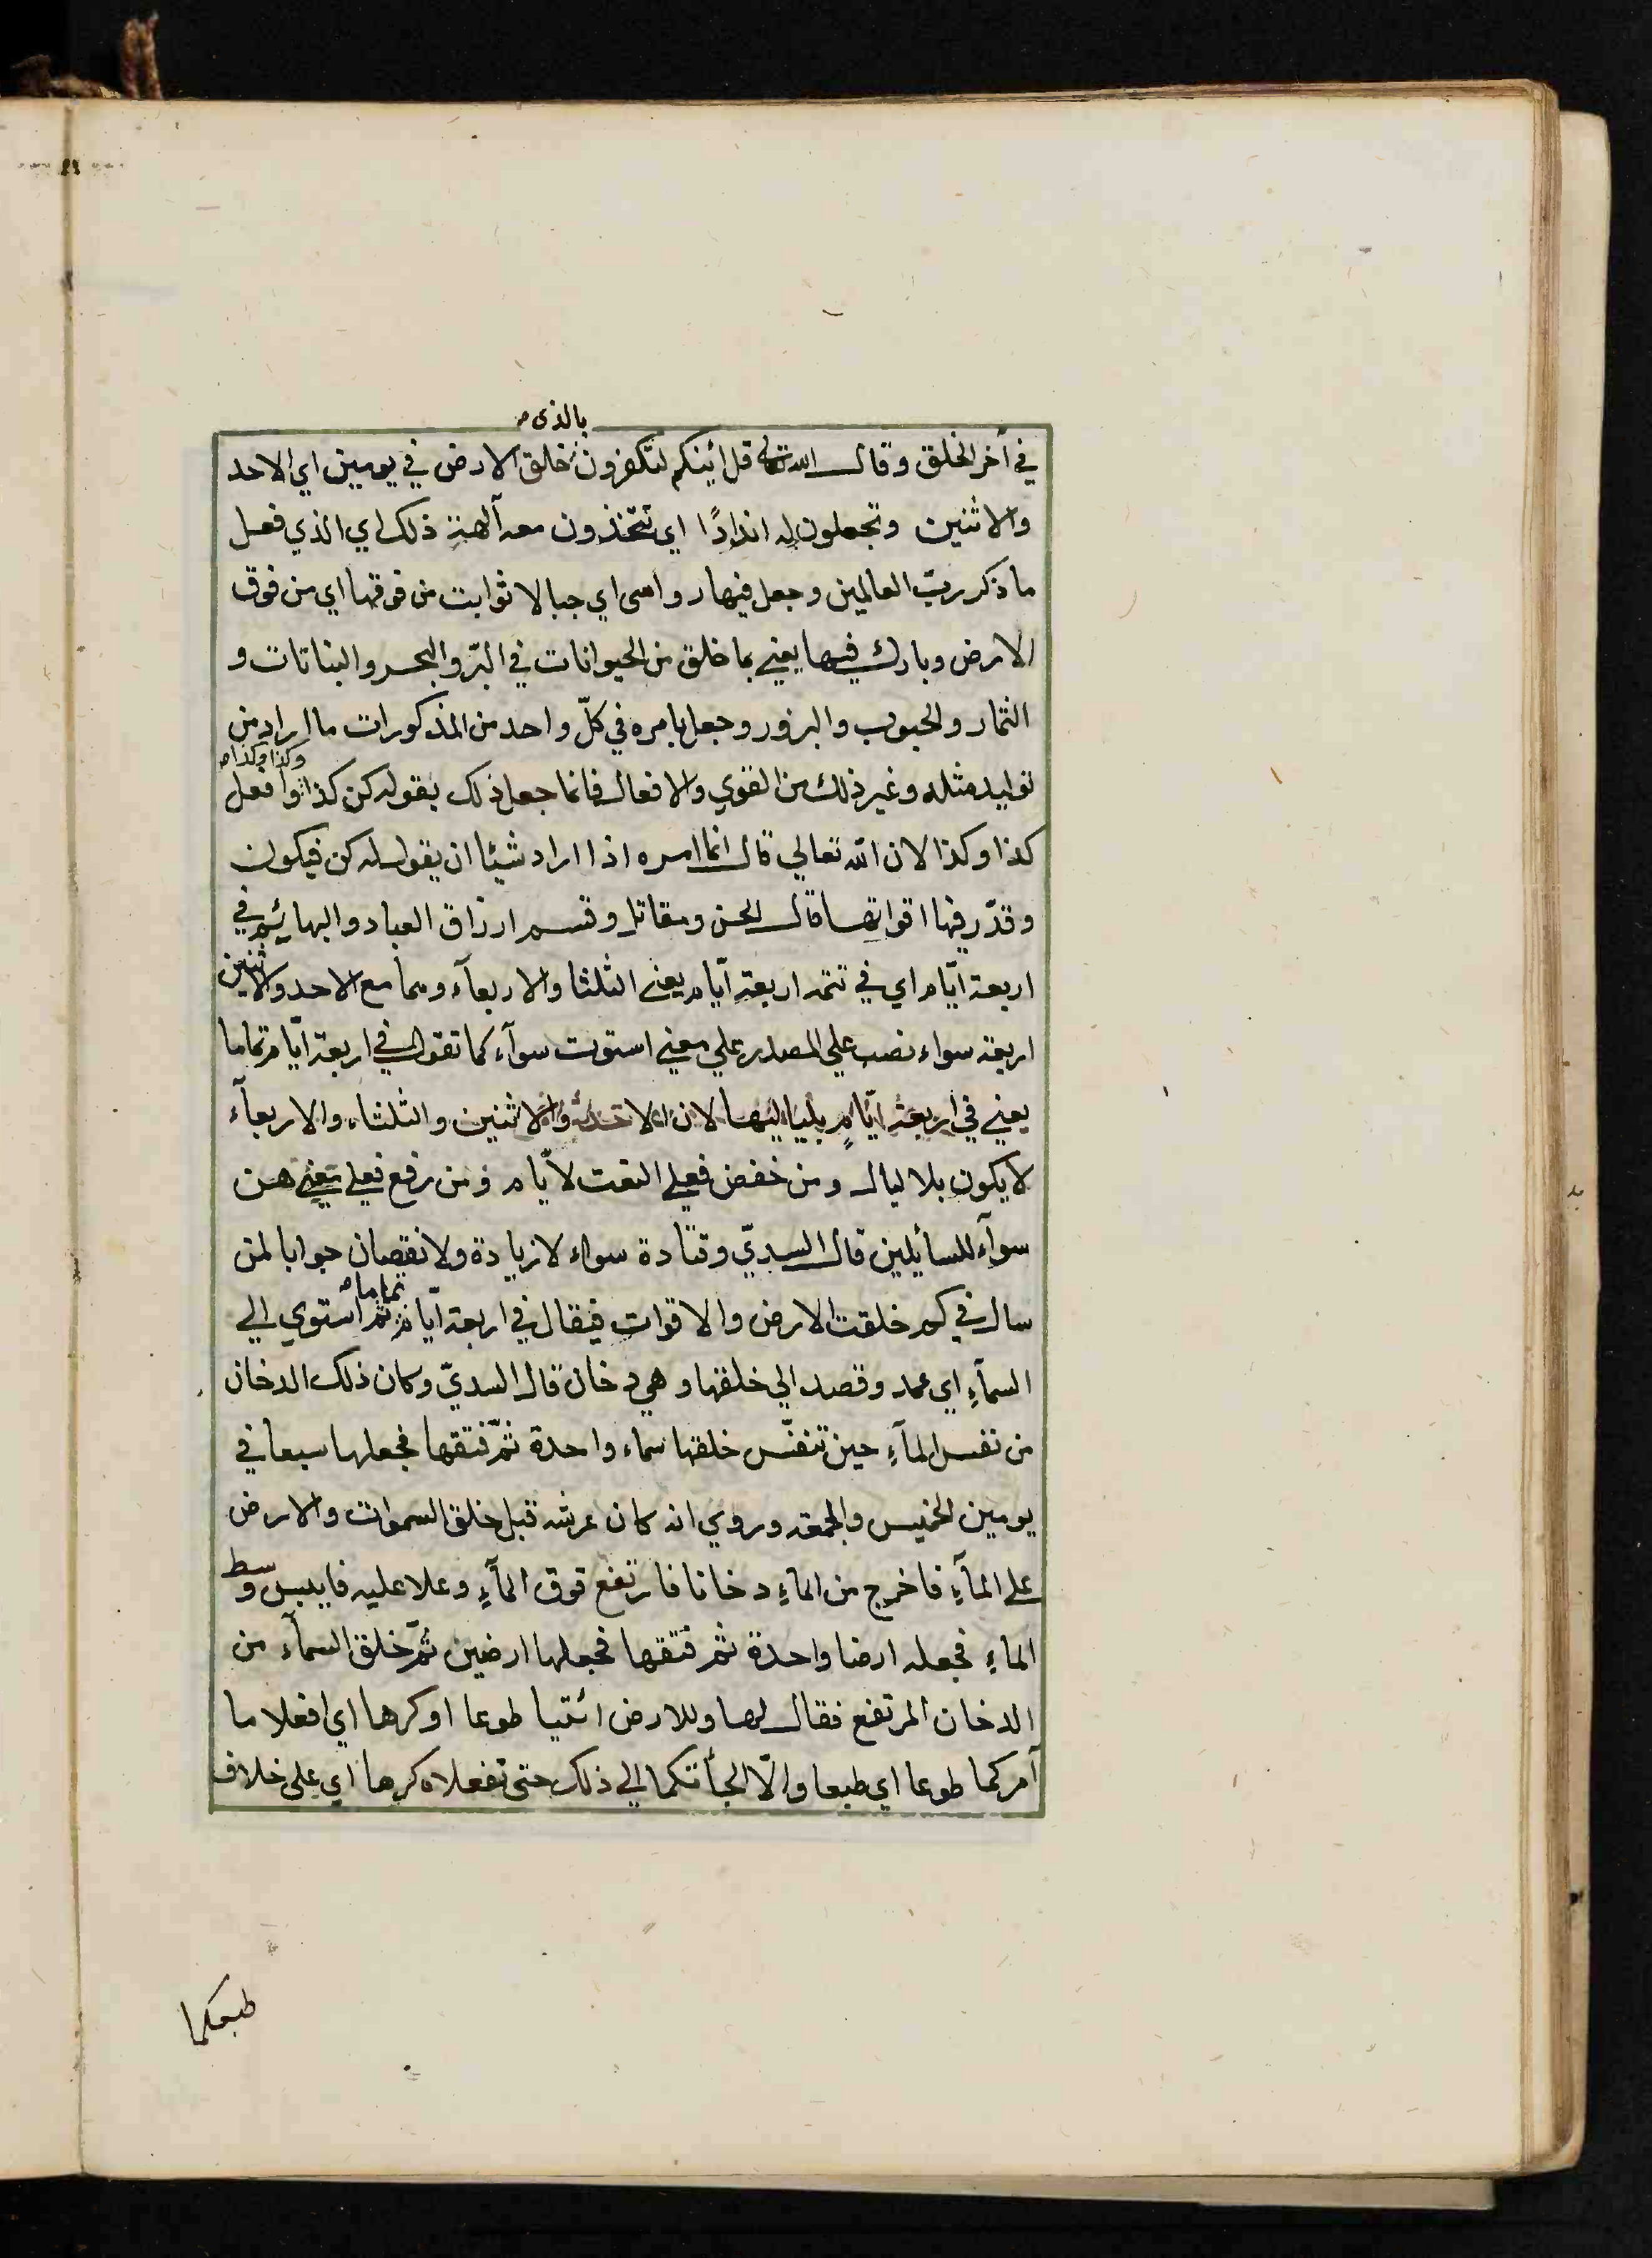 بالذى
في آخر الخلق وقال الله تعالى قل ائينكم لتكفرون خلق الارض في يومين اي الاحد
والاثنين وتجعلون له اندادًا اي تتخذون معه آلهة ذلك اي الذي فعل
ما ذكر ربّ العالمين وجعل فيها رواسى اي جبالا ثوابت من فوقها اي من فوق
الارض وبارك فيها يعني بما خلق من الحيوانات في البرّ والبحر والبناتات و
الثمار والحبوب والبزور وجعل بامره في كلّ واحد من المذكورات ما اراد من
وكذا وكذا
توليد مثله وغير ذلك من القوي والافعال فانما جعل ذلك بقوله كن كذا وافعل
كذا وكذا لان الله تعالي قال انما امره اذا اراد شيئا ان يقول له كن فيكون
وقدّر فيها اقواتها قال الحسن ومقاتل وقسم ارزاق العباد والبهائيم في
اربعة ايّام اي في تتمه اربعة ايّام يعني الثلثا والاربعآء وهما مع الاحد والاثنين
اربعة سواء نصب علي المصدر علي معني استوت سوآء كما تقول في اربعة ايّام تماما
يعني في اربعة ايّامٍ بلياليها لان الاحد والاثنين والثلثاء والاربعآء
لا يكون بلا ليال ومن خفض فعلي النعت لايّام ومن رفع فعلي معني هن
سوآء للسائلين قال السديّ وقتادة سواء لا زيادة ولا نقصان جوابا لمن
تماما
سال في كم خلقت الارض والاقوات فيقال في اربعة ايّام ثم استوي الي
السمآءِ اي عمد وقصد الي خلقها وهي دخان قال السديّ وكان ذلك الدخان
من نفس المآءِ حين تنفّس خلقها سماء واحدة ثمّ فتقها فجعلها سبعا في
يومين الخميس والجمعه وروي انه كان عرشه قبل خلق السموات والارض
علي المآءِ فاخرج من الماءِ دخانا فارتفع فوق المآءِ وعلا عليه فايبس وسط
الماءِ فجعله ارضا واحدة ثم فتقها فجعلها ارضين ثمّ خلق السمآء من
الدخان المرتفع فقال لها وللارض ائتيا طوعا او كرها اي افعلا ما
آمركما طوعا اي طبعا والّا الجأتكما الي ذلك حتى تفعلاه كرها اي على خلاف
طبعكما